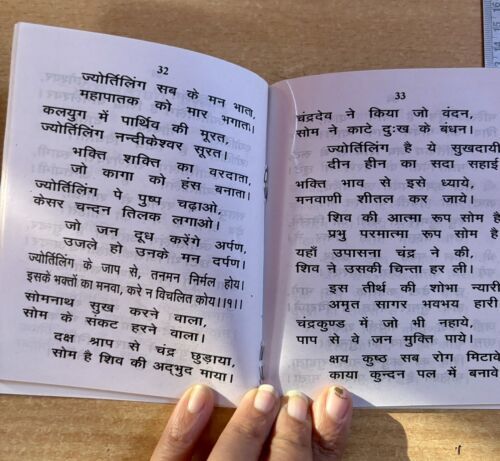 32
ज्योर्तिलिंग सब के मन भाता,
महापातक को मार भगाता।
कलयुग में पार्थिव की मूरत,
ज्योर्तिलिंग नन्दीकेश्वर सूरत।
भक्ति शक्ति का वरदाता,
जो कागा को हंस बनाता।
ज्योर्तिलिंग पे पुष्प चढ़ाओ,
केसर चन्दन तिलक लगाओ।
जो जन दूध करेंगे अर्पण,
उजले हो उनके मन दर्पण।
ज्योर्तिलिंग के जाप से, तनमन निर्मल होय।
इसके भक्तों का मनवा, करे न विचलित कोय।।१।।
सोमनाथ सुख करने वाला,
सोम के संकट हरने वाला।
दक्ष श्राप से चंद्र छुड़ाया,
सोम है शिव की अद्भुद माया।
33
चंद्रदेव ने किया जो वंदन,
सोम ने काटे दुःख के बंधन।
ज्योर्तिलिंग है ये सुखदायी
दीन हीन का सदा सहाई
भक्ति भाव से इसे ध्याये,
मनवाणी शीतल कर जाये।
शिव की आत्मा रूप सोम है
प्रभु परमात्मा रूप सोम है
यहाँ उपासना चंद्र ने की,
शिव ने उसकी चिन्ता हर ली।
इस तीर्थ की शोभा न्यारी
अमृत सागर भवभय हारी
चंद्रकुण्ड में जो भी नहाये,
पाप से वे जन मुक्ति पाये।
क्षय कुष्ठ सब रोग मिटावे
काया कुन्दन पल में बनावे
14
15
16